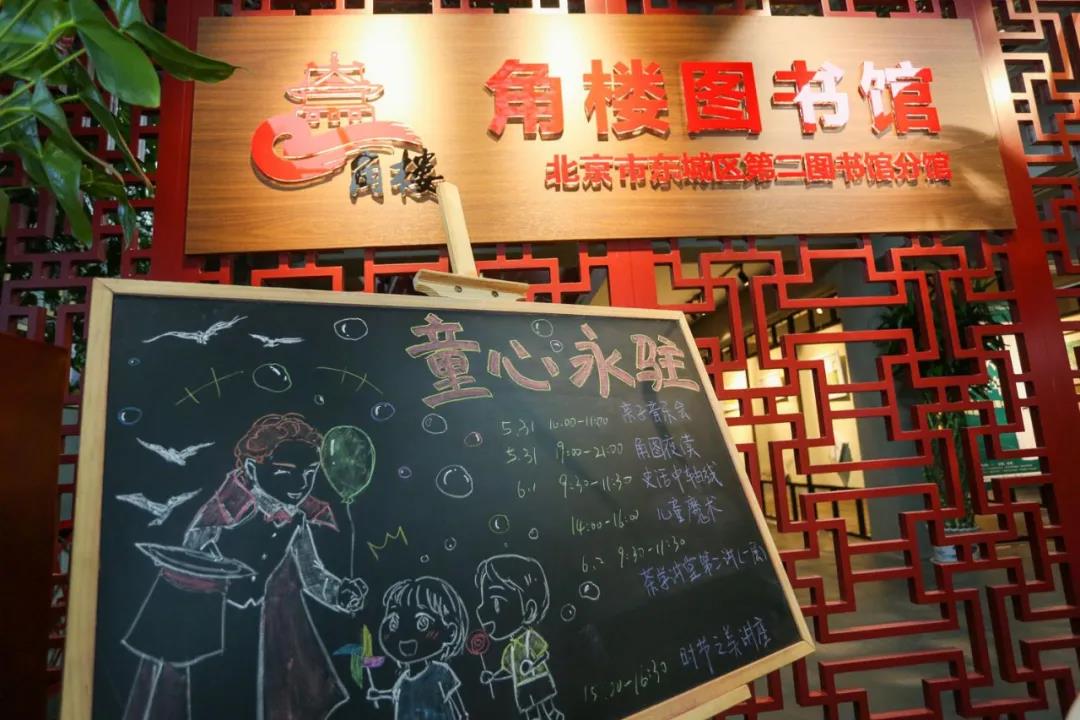 角楼图书馆
角楼
北京市东城区第二图书馆分馆
童心永驻
5.31 10:00-11:00 亲子音乐会
5.31 19:00-21:00 角图夜读
6.1 9:30-11:30 史话中轴线
14:00-16:00 儿童魔术
6.2 9:30-11:30
茶学讲堂第二讲
15:00-16:30 时节之美讲座